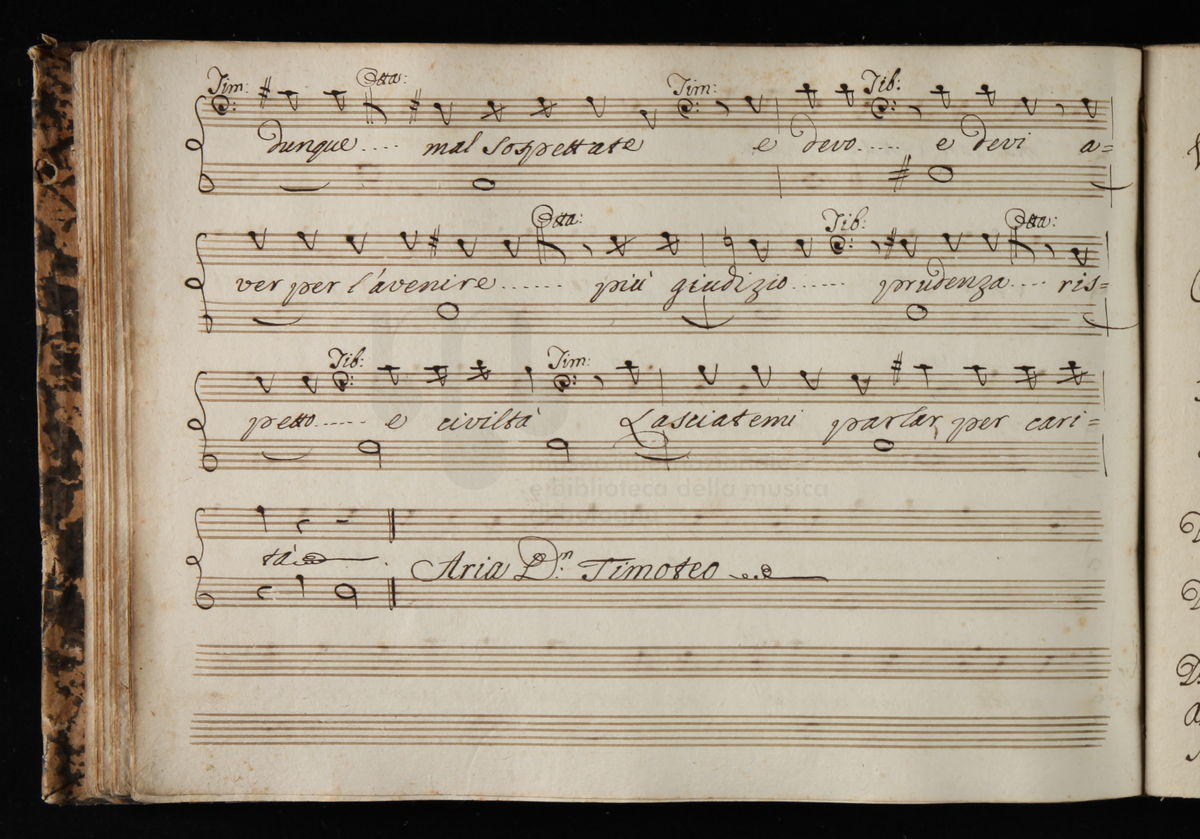 Tim: Tim: Tib:
dunque..... mal sospettate e devo..... e devi a=
Tib:
ver per l'avenire....... più giudizio...... prudenza.... ris=
Tib: Tim:
petto...... e civiltà Lasciatemi parlar per cari=
tà
Aria D.n Timoteo
e biblioteca della musica